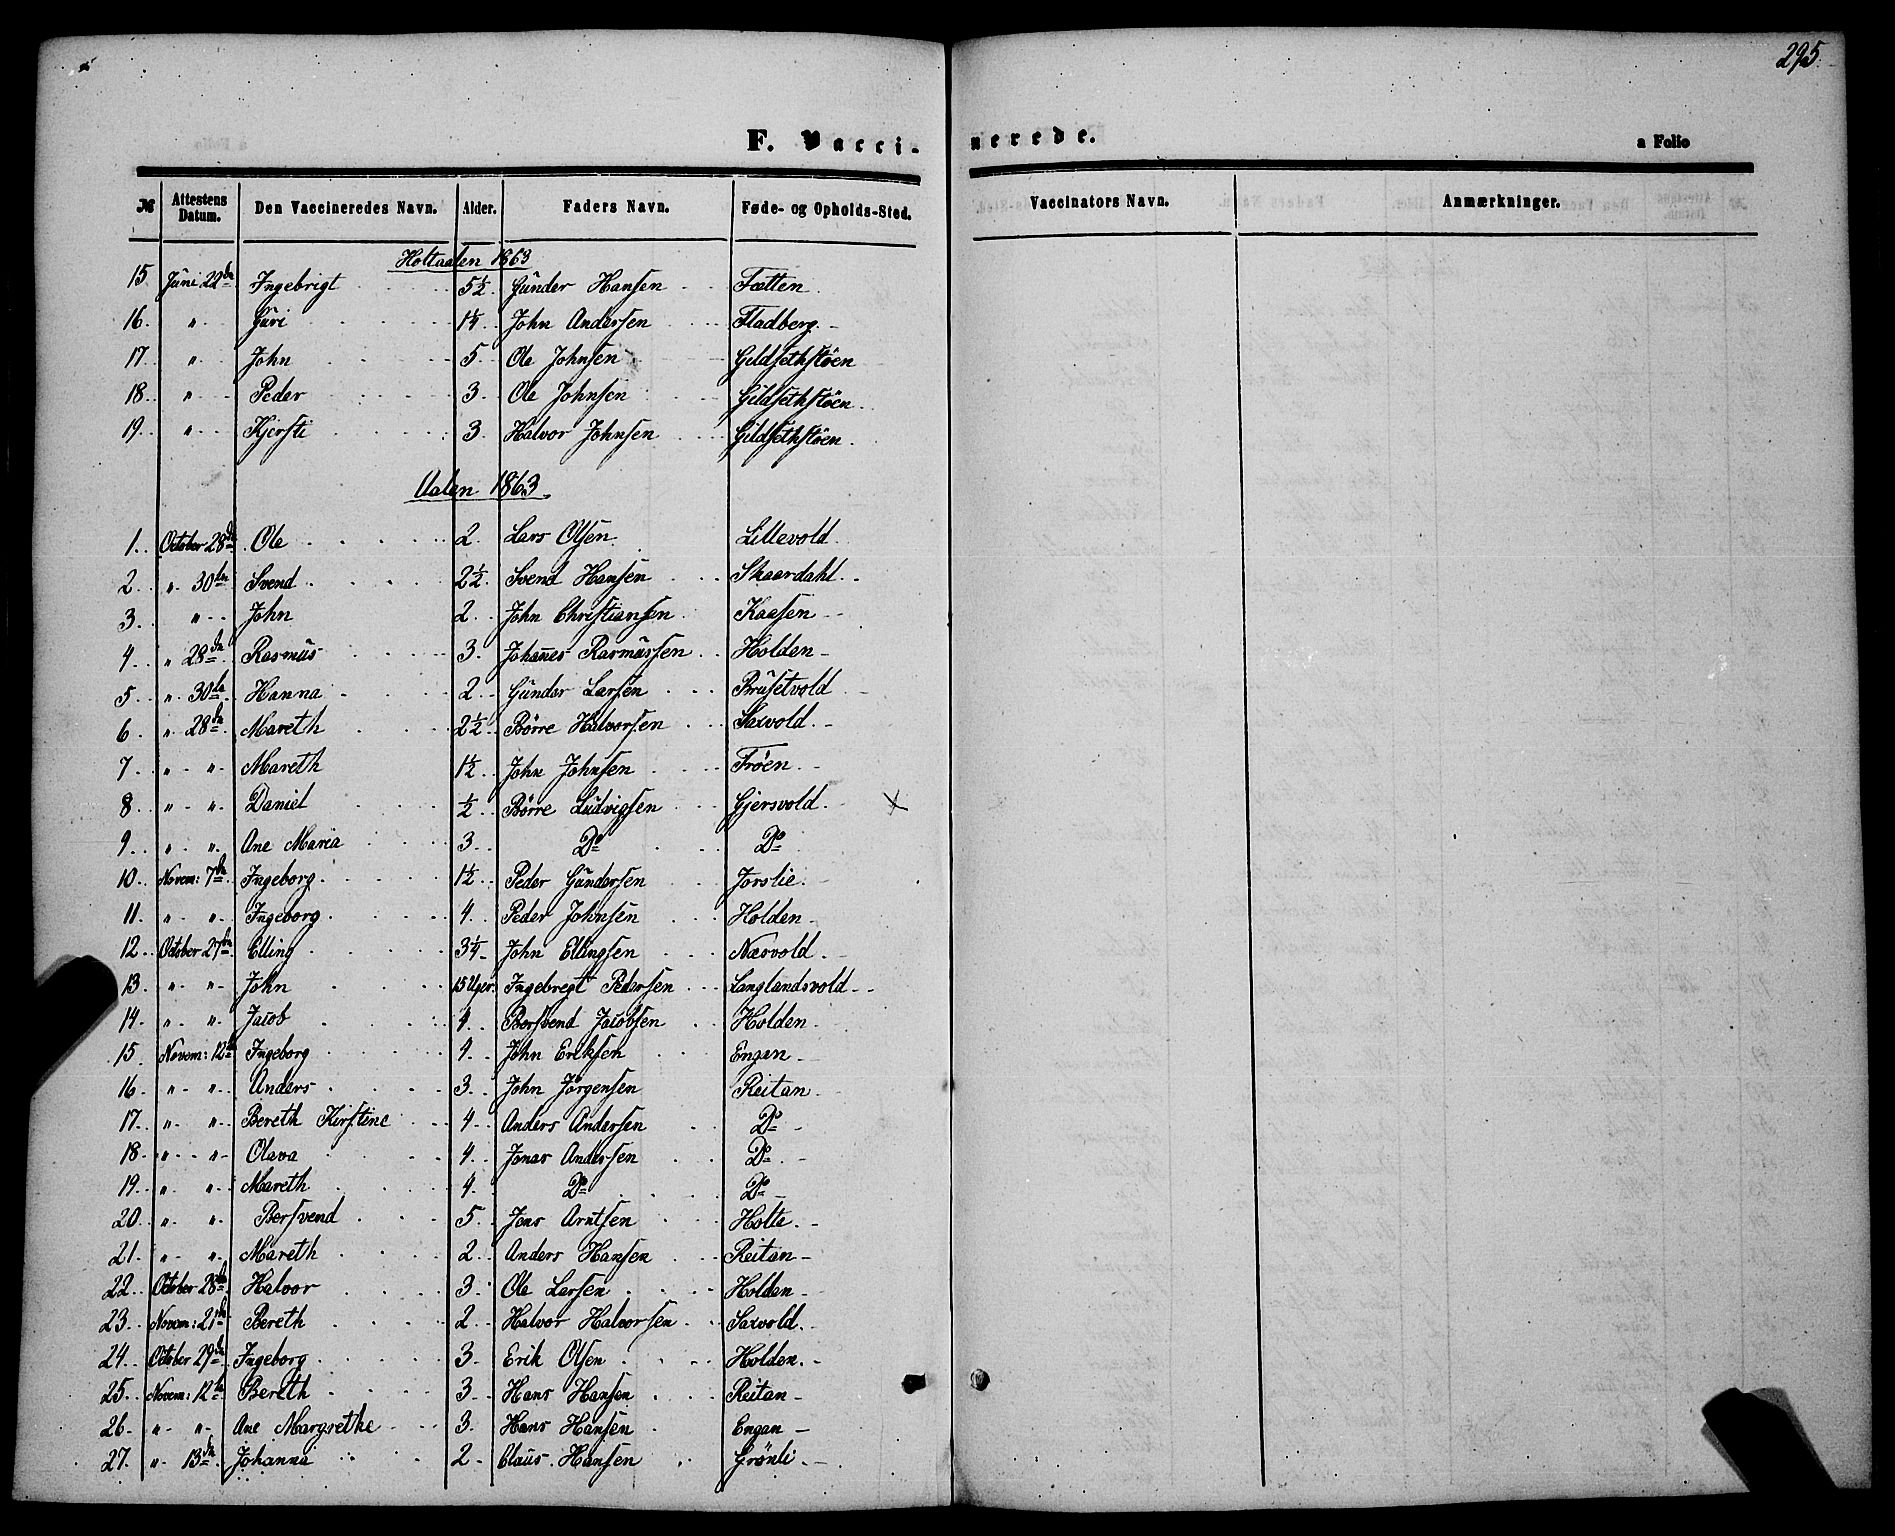 295
F. Vaccinerede.
a Folio
№ Attestens Datum. Den Vaccineredes Navn. Alder. Faders Navn. Føde- og Opholds-Sted. Vaccinators Navn. Anmærkninger.
Holtaalen 1863
15 Juni 22de Ingebrigt 5½ Gunder Hansen Fætten
16. " Guri 1¼ John Andersen Fladberg.
17. " John 5. Ole Johnsen Gildsethstöen
18. " Peder 3. Ole Johnsen Gildsethstöen
19. " Kjersti 3. Halvor Johnsen Gildsethstöen
Aalen 1863
1. October 28de Ole 2. Lars Olsen Lillevold.
2. " 30te Svend 2½ Svend Hansen Skaardahl.
3. " John 2. John Christiansen Kaasen
4. " 28de Rasmus 3. Johañes Rasmussen Holden
5. " 30te Hanna 2. Gunder Larsen Brusetvold
6. " 28de Mareth 2½ Börre Halvorsen Saxvold.
7. " " Mareth 1½ John Johnsen Tröen
8. " " Daniel ½ Börre Ludvigsen Gjersvold. x
9. " " Ane Maria 3. Do Do
10. Novem: 7de Ingeborg 1½ Peder Gundersen Jorslie.
11. " " Ingeborg 4. Peder Johnsen Holden
12. October 27de Elling 3¼ John Ellingsen Næsvold.
13. " " John 15 Uger. Ingebregt Pedersen Langlandsvold
14. " " Jacob 4. Bersvend Jacobsen Holden
15. Novem: 12te Ingeborg 4. John Eriksen Engan
16. " " Anders 3. John Jörgensen Reitan
17. " " Bereth Kirstine 4. Anders Andersen Do
18. " " Olava 4. Jonas Andersen Do
19. " " Mareth 4. Do Do
20. " " Bersvend 5. Jens Arntsen Holte.
21. " " Mareth 2. Anders Hansen Reitan
22. October 28de Halvor 3. Ole Larsen Holden
23. Novem: 21de Bereth 2. Halvor Halvorsen Saxvold.
24. October 29de Ingeborg 3. Erik Olsen Holden.
25. Novem: 12te Bereth 3. Hans Hansen Reitan
26. " " Ane Margrethe 3. Hans Hansen Engan
27. " 13de Johanna 2. Claus Hansen Grönli